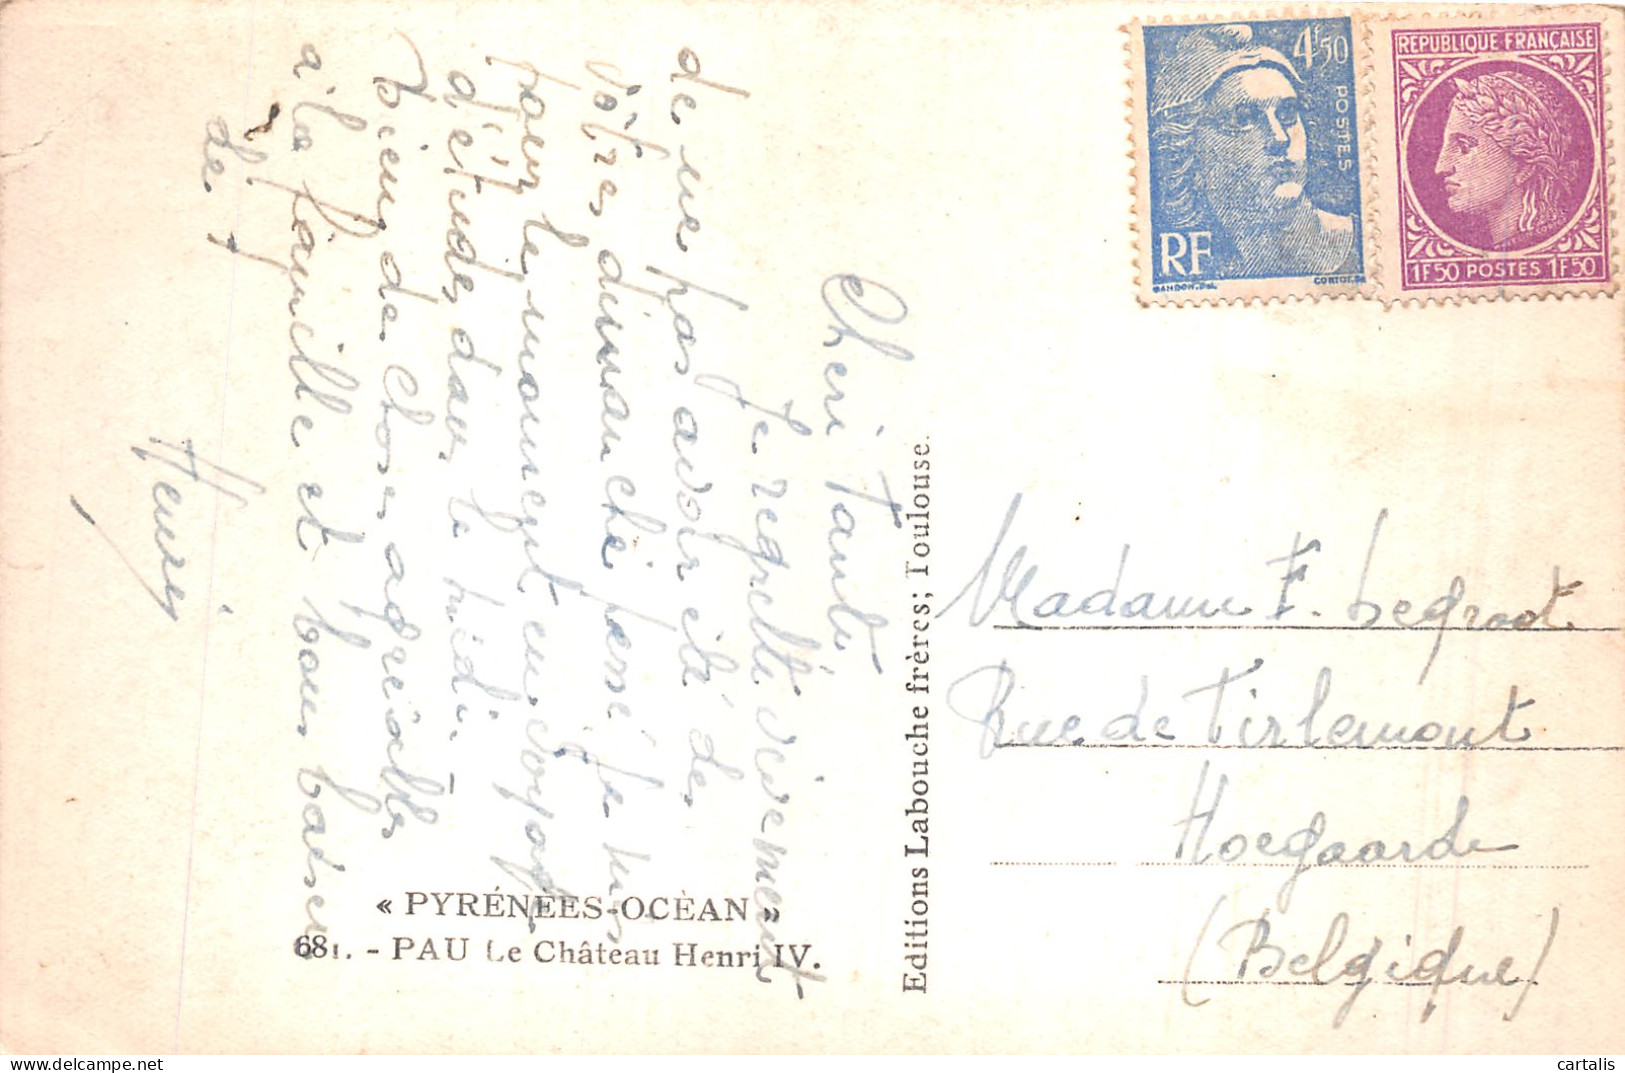 Cheri Tante
Je regrette vivement
de ne pas avoir été des
vôtres dimanche passé. Je suis
pour le moment en voyage
d'études dans le midi.
Bien des choses agréables
à la famille et bons baisers
de
Henri
« PYRÉNÉES-OCÉAN »
681. - PAU Le Château Henri IV.
Editions Labouche frères; Toulouse.
4F50
POSTES
RF
GANDON.DEL.
CORTOT.SC
REPUBLIQUE FRANÇAISE
1F50 POSTES 1F50
Madame F. Degroot
Rue de Tirlemont
Hoegaarde
(Belgique)
cartalis